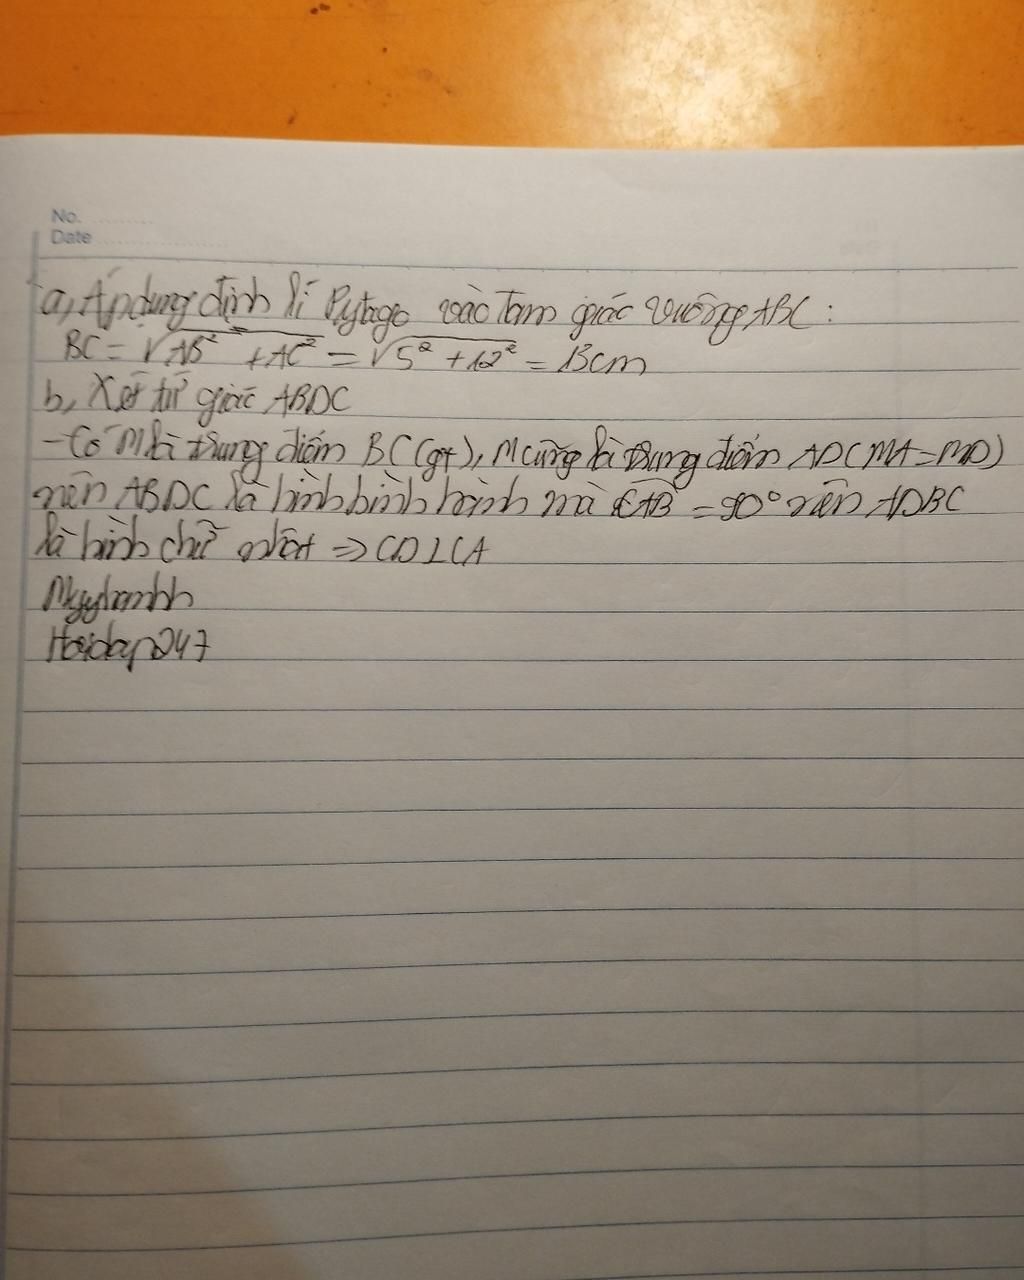 No.
Date
a, Áp dụng định lí Pytago vào Tam giác vuông ABC:
BC = √AB² + AC² = √5² + 12² = 13cm
b, Xét tứ giác ABDC
- Có M là trung điểm BC (gt), M cũng là trung điểm AD (MA = MD)
nên ABDC là hình bình hành mà CAB = 90° nên ADBC
là hình chữ nhật => CD⊥CA
Hoidap247